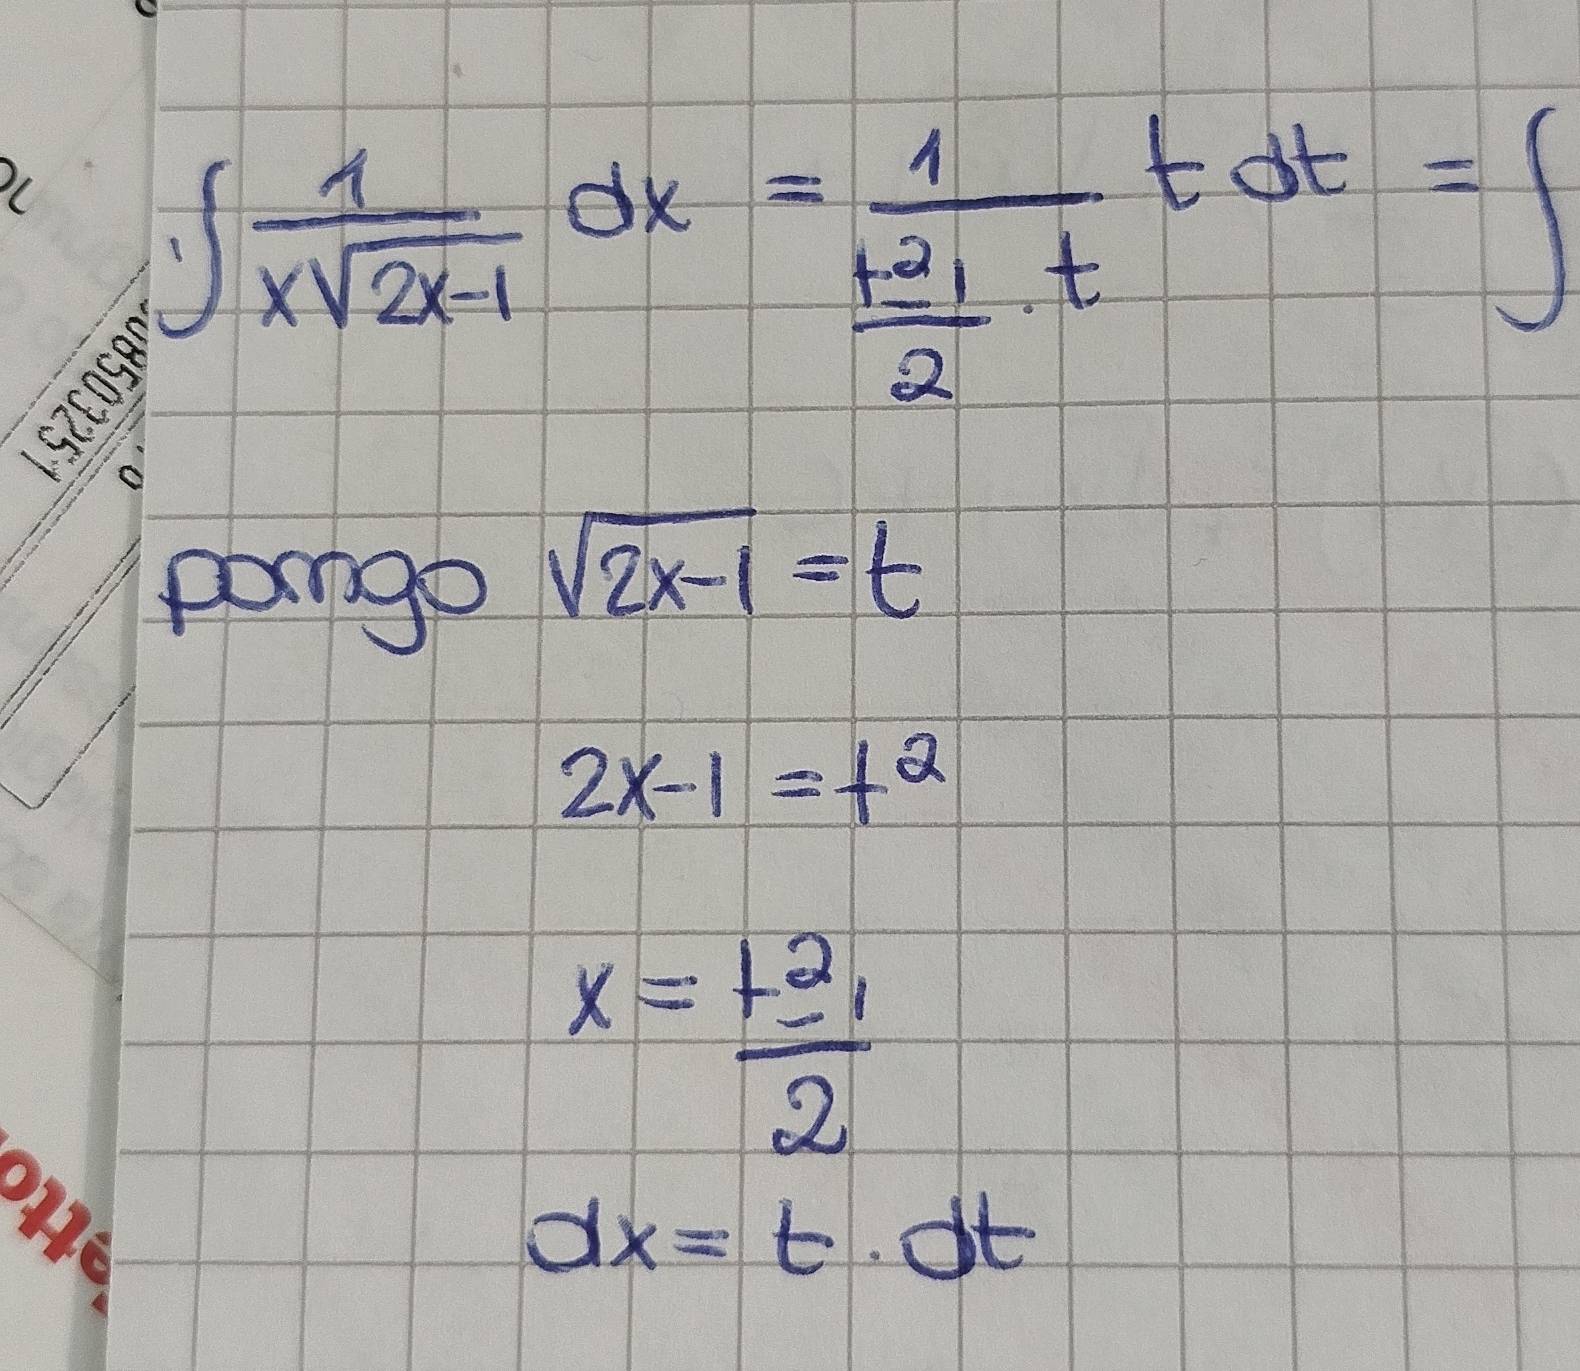 ∫ 1/(x√(2x-1)) dx = 1/((t²-1)/2 · t) t dt = ∫
pongo √(2x-1) = t
2x-1 = t²
x = (t²-1)/2
dx = t · dt